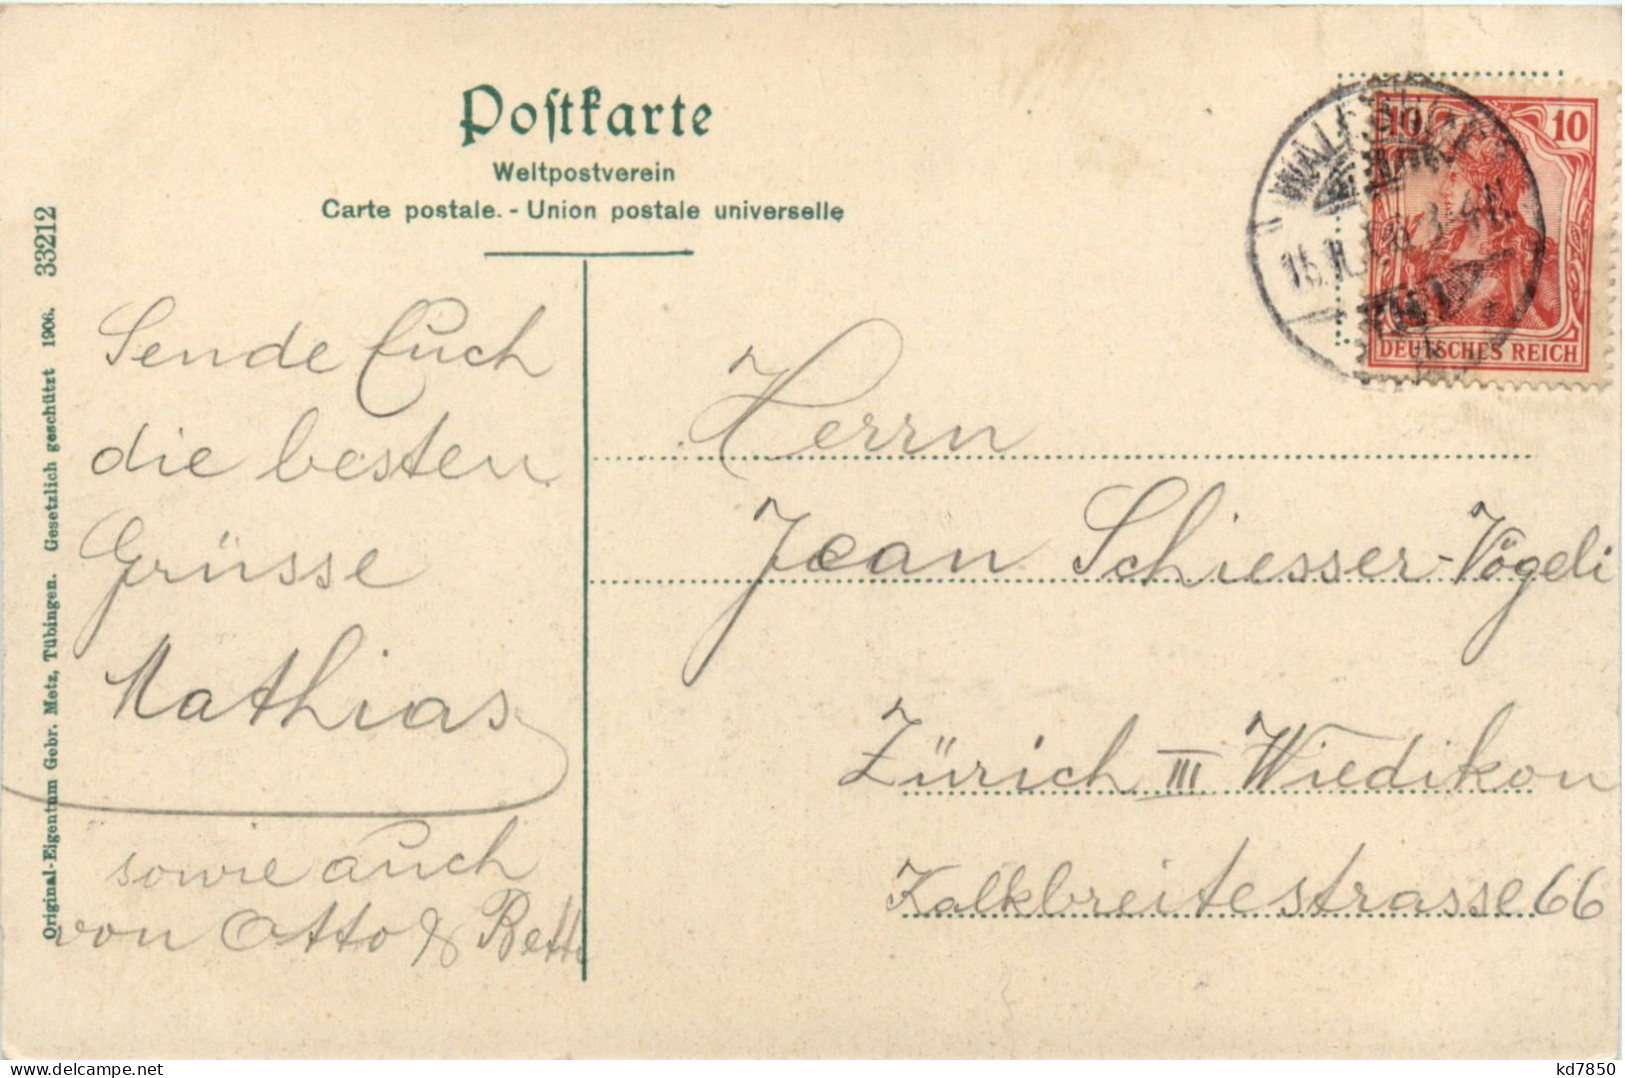 Postkarte
Weltpostverein
Carte postale. - Union postale universelle
Original-Eigentum Gebr. Metz, Tübingen. Gesetzlich geschützt 1906. 33212
10 10
DEUTSCHES REICH
Sende Euch
die besten
Grüsse
Mathias
sowie auch
von Otto & Betti
Herrn
Jean Schiesser-Vögeli
Zürich III Wiedikon
Kalkbreitestrasse 66
kd7850